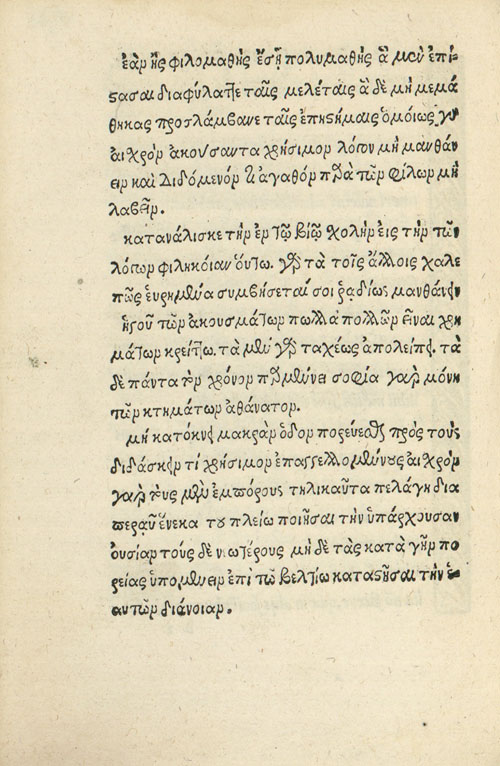 ἐὰν ᾖς φιλομαθὴς ἔσῃ πολυμαθὴς ἃ μὲν ἐπί
στασαι διαφύλαττε ταῖς μελέταις ἃ δὲ μὴ μεμά
θηκας προσλάμβανε ταῖς ἐπιστήμαις ὁμοίως γὰρ
αἰχρὸν ἀκούσαντα χρήσιμον λόγον μὴ μανθάν
ειν καὶ διδόμενόν τι ἀγαθὸν παρὰ τῶν φίλων μὴ
λαβεῖν.
κατανάλισκε τὴν ἐν τῷ βίῳ χολὴν εἰς τὴν τῶν
λόγων φιληκοίαν οὕτω. γὰρ τὰ τοῖς ἄλλοις χαλε
πῶς εὑρημένα συμβήσεταί σοι ῥαδίως μανθάνειν
ἡγοῦ τῶν ἀκουσμάτων πολλὰ πολλῶν εἶναι χρη
μάτων κρείττω. τὰ μὲν γὰρ ταχέως ἀπολείπει. τὰ
δὲ πάντα τὸν χρόνον παραμένει σοφία γὰρ μόνη
τῶν κτημάτων ἀθάνατον.
μὴ κατόκνει μακρὰν ὁδὸν πορεύεσθαι πρὸς τοὺς
διδάσκειν τί χρήσιμον ἐπαγγελλομένους αἰχρὸν
γὰρ τοὺς μὲν ἐμπόρους τηλικαῦτα πελάγη δια
περᾶν ἕνεκα τοῦ πλείω ποιῆσαι τὴν ὑπάρχουσαν
οὐσίαν τοὺς δὲ νεωτέρους μὴ δὲ τὰς κατὰ γῆν πο
ρείας ὑπομένειν ἐπὶ τῷ βελτίω καταστῆσαι τὴν ἑ
αυτῶν διάνοιαν.